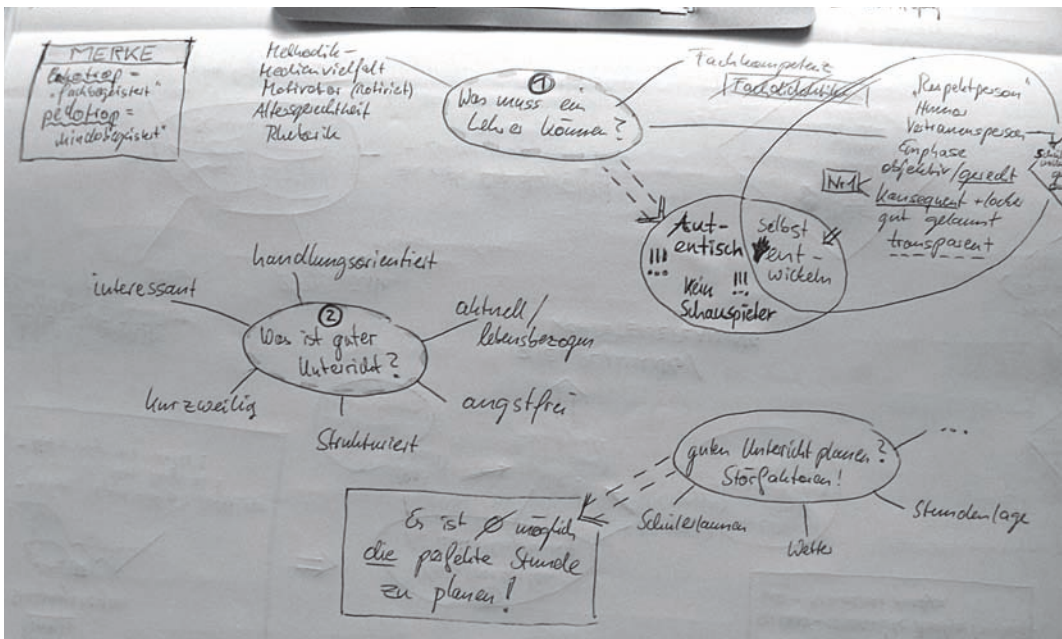 MERKE
Logotrop =
"fachbegeistert"
pädotrop =
"kindsbegeistert"
Methodik –
Medienvielfalt
Motivator (motiviert)
Altersgerechtheit
Rhetorik
①
Was muss ein
Lehrer können?
Fachkompetenz
Fachdidaktik
"Respektperson"
Humor
Vertrauensperson
Emphase
objektiv/gerecht
Nr 1
konsequent + locker
gut gelaunt
transparent
Aut-
entisch
!!!
Kein !!!
Schauspieler
Selbst
ent-
wickeln
②
Was ist guter
Unterricht?
handlungsorientiert
interessant
aktuell/
lebensbezogen
kurzweilig
angstfrei
Strukturiert
guten Unterricht planen?
Störfaktoren!
...
Schülerlaunen
Wetter
Stundenlage
Es ist Ø möglich
die perfekte Stunde
zu planen!